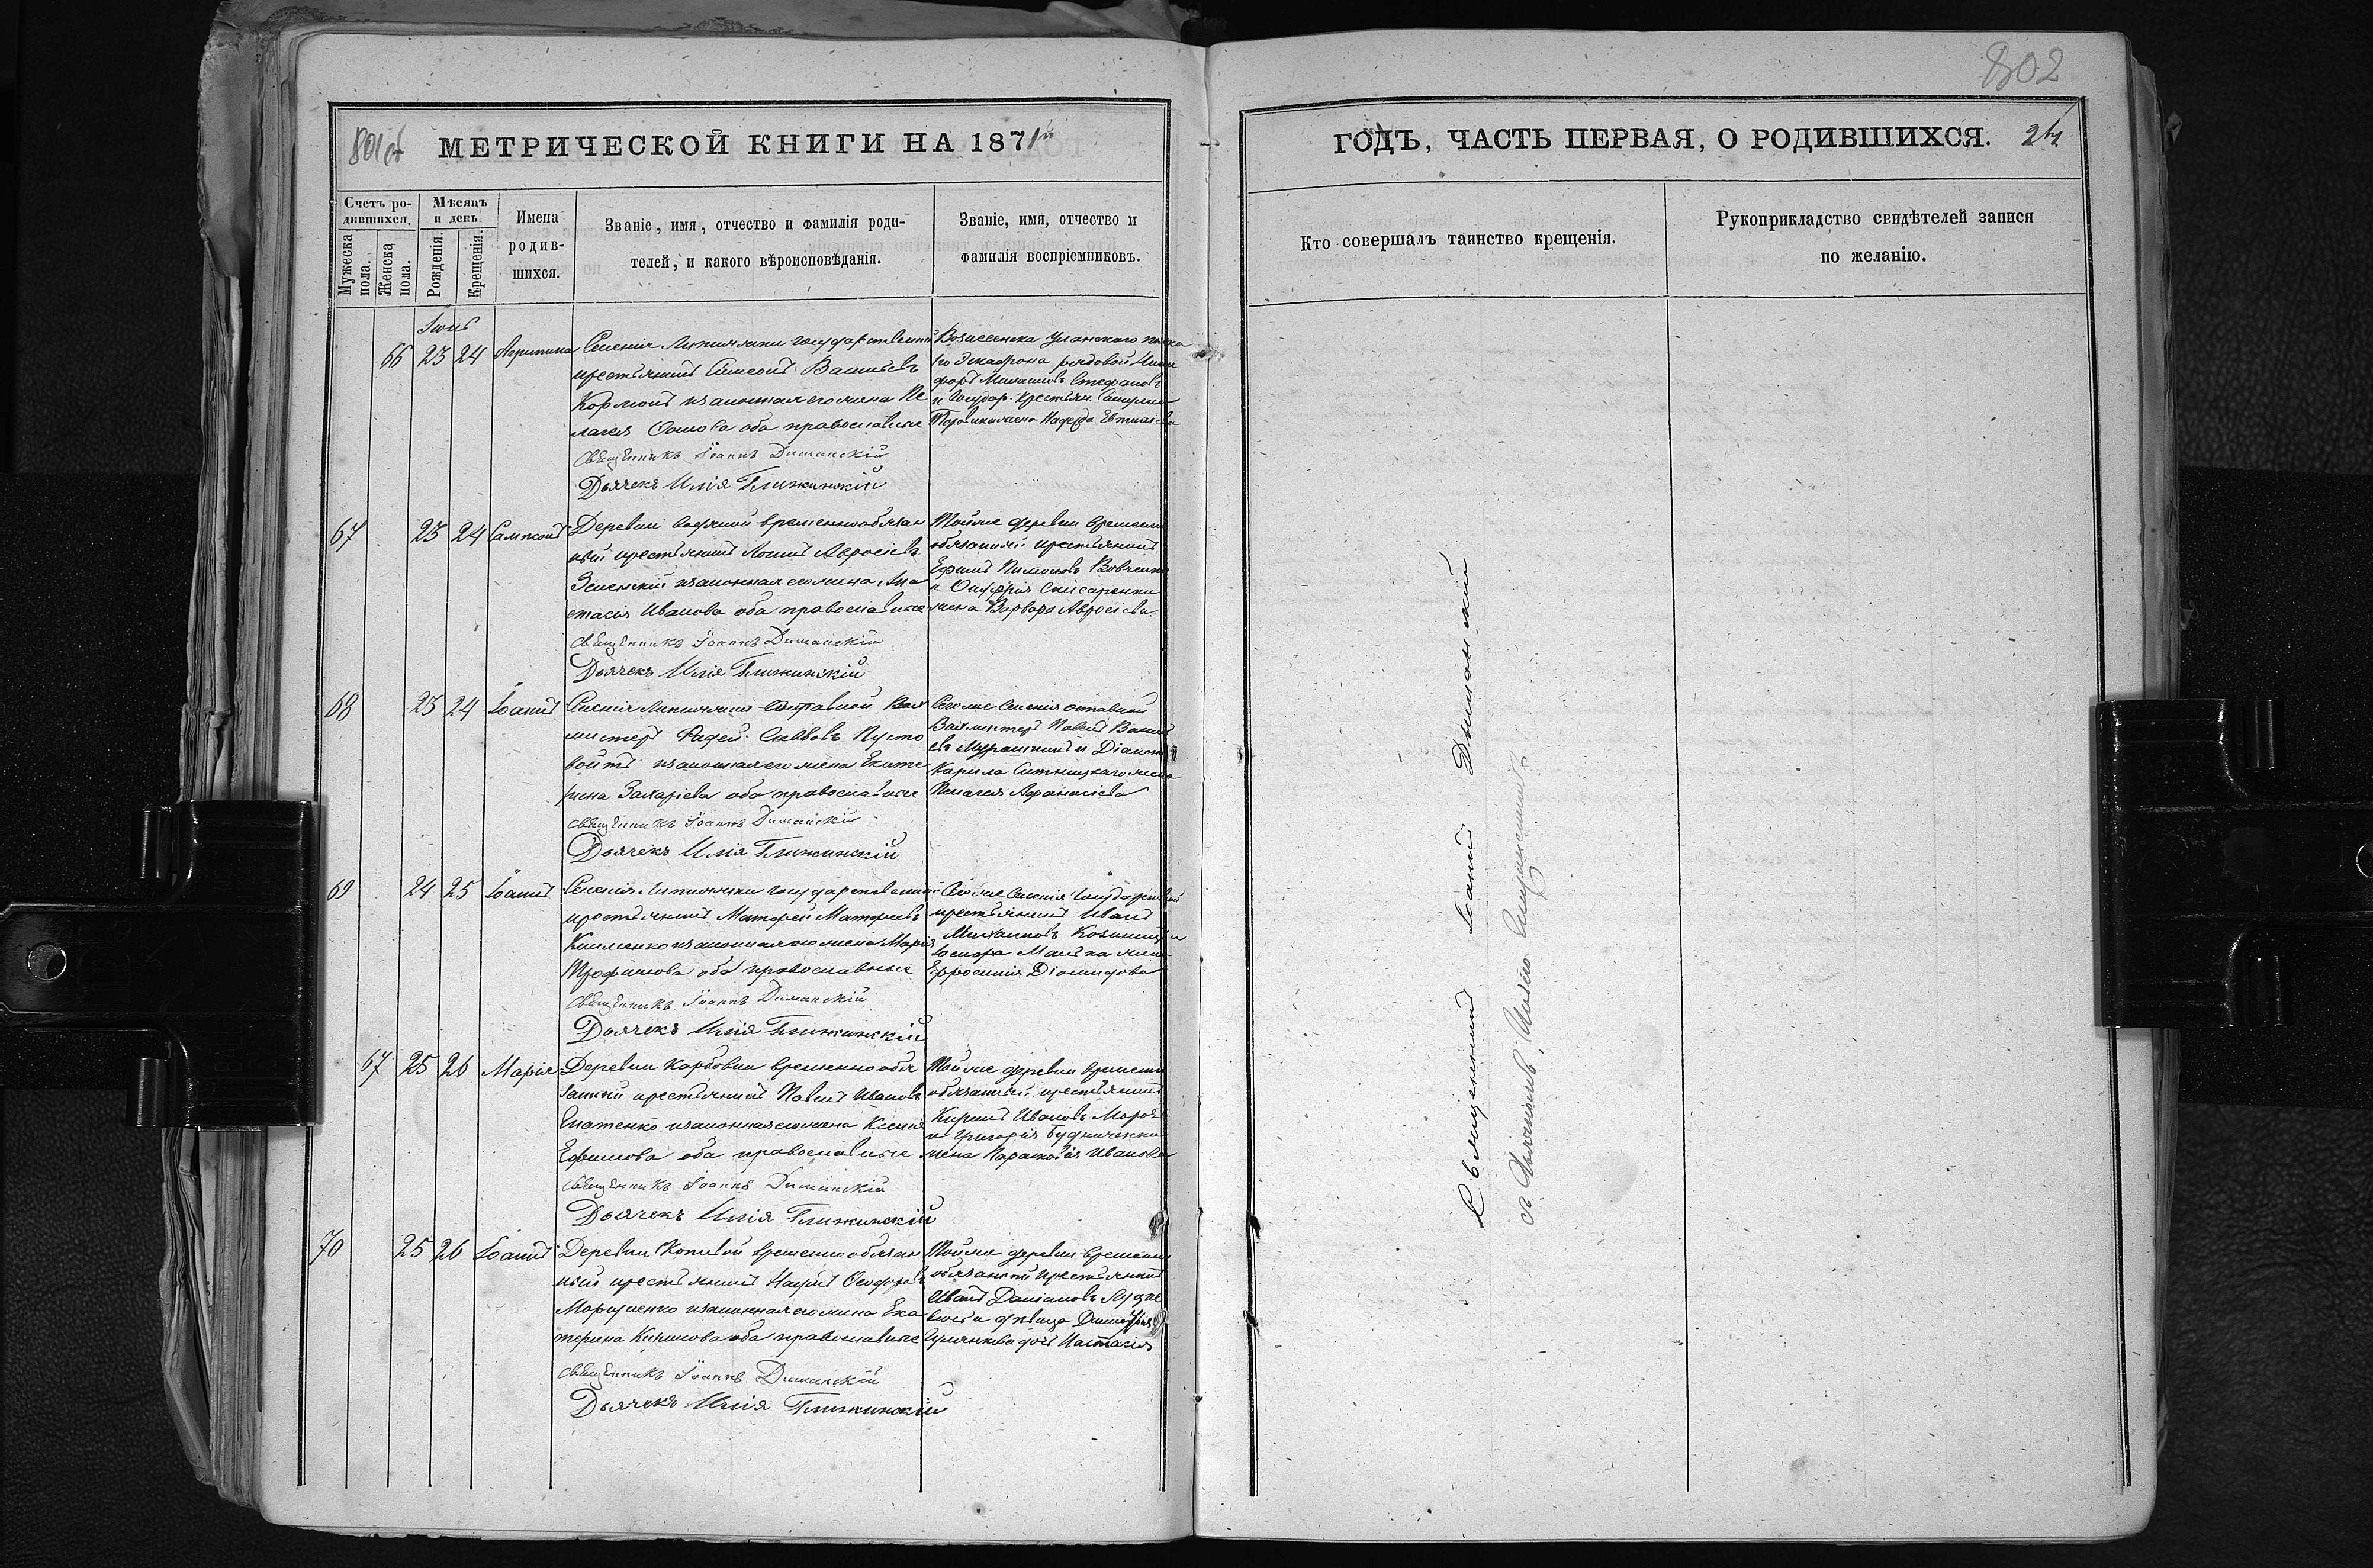 801 об
МЕТРИЧЕСКОЙ КНИГИ НА 1871й
Счетъ ро-
дившихся.
Мужеска пола.
Женска пола.
Мѣсяцъ
и день.
Рожденія.
Крещенія.
Имена
родив-
шихся.
Званіе, имя, отчество и фамилія роди-
телей, и какого вѣроисповѣданія.
Званіе, имя, отчество и
фамилія воспріемниковъ.
Іюнь
66 23 24 Агрипина
Селенія Липняжки государственный
крестьянинъ Симеонъ Васильевъ
законная его жена Пе
лагея оба православные
Священникъ Іоаннъ Диманскій
Дьячекъ Илія Ближинскій
Вознесенска Уланскаго полка
1го Эскадрона рядовой Ники
форъ Стефановъ
и Государ. крестьян.
жена
67 23 24 Сампсонъ
Деревни временнообязан
ный крестьянинъ Авросіевъ
Зеленскій законная его жена Ана
стасія Иванова оба православные
Священникъ Іоаннъ Диманскій
Дьячекъ Илія Ближинскій
Той же деревни временно
обязанный крестьянинъ
Ефимъ Вовченко
и Онуфрія Слисаренки
жена Варвара Авросіева
68 23 24 Іоаннъ
Селенія Липняжки отставной Вах
мистеръ Фадей Савовъ Пусто
войтъ законная его жена Екате
рина Захаріева оба православные
Священникъ Іоаннъ Диманскій
Дьячекъ Илія Ближинскій
Сего же Селенія отставной
Вахмистеръ Павелъ Василь
евъ и Діакона
Кирила Ситницкаго жена
Пелагея Афанасіева
69 24 25 Іоаннъ
Селенія Липняжки государственный
крестьянинъ Матфей Матфеевъ
Клименко законная его жена Марія
Трофимова оба православные
Священникъ Іоаннъ Диманскій
Дьячекъ Илія Ближинскій
Сего же Селенія Государственный
крестьянинъ Иванъ
Михаиловъ
жена
Ефросинія Діомидова
67 25 26 Марія
Деревни Карбовки временно обя
занный крестьянинъ Павелъ Ивановъ
Игнатенко законная его жена Ксенія
Ефимова оба православные
Священникъ Іоаннъ Диманскій
Дьячекъ Илія Ближинскій
Той же деревни временно
обязанный крестьянинъ
Кирилъ Ивановъ Морозъ
и Григорія Будниченки
жена Параскевія Иванова
70 25 26 Іоаннъ
Деревни временно обязан
ный крестьянинъ Наумъ Феодоровъ
Морщенко законная его жена Ека
терина Кирилова оба православные
Священникъ Іоаннъ Диманскій
Дьячекъ Илія Ближинскій
Той же деревни временно
обязанный крестьянинъ
Иванъ Даміановъ
и дѣвица Димитрія
дочь Настасія
802
ГОДЪ, ЧАСТЬ ПЕРВАЯ, О РОДИВШИХСЯ.
Кто совершалъ таинство крещенія.
Рукоприкладство свидѣтелей записи
по желанію.
Священникъ Іоаннъ Диманскій
съ Дьякономъ